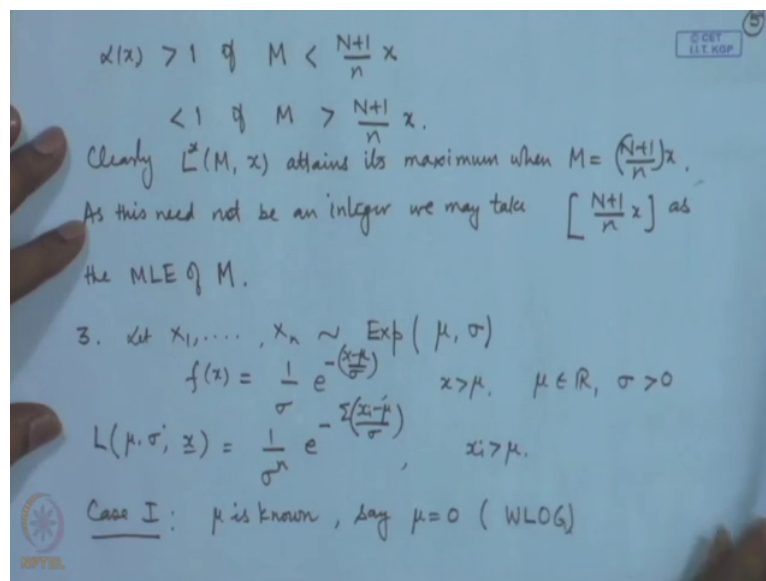 5
© CET
I.I.T. KGP
α(x) > 1 if M < (N+1)/n x
< 1 if M > (N+1)/n x.
Clearly L*(M, x) attains its maximum when M = ((N+1)/n) x.
As this need not be an integer we may take [ (N+1)/n x ] as
the MLE of M.
3. Let X₁, ...., Xₙ ~ Exp( μ, σ)
f(x) = 1/σ e^{-((x-μ)/σ)} x>μ. μ ∈ ℝ, σ >0
L(μ, σ, x) = 1/σⁿ e^{- Σ((xᵢ-μ)/σ)}, xᵢ > μ.
Case I : μ is known, say μ=0 ( WLOG)
NPTEL